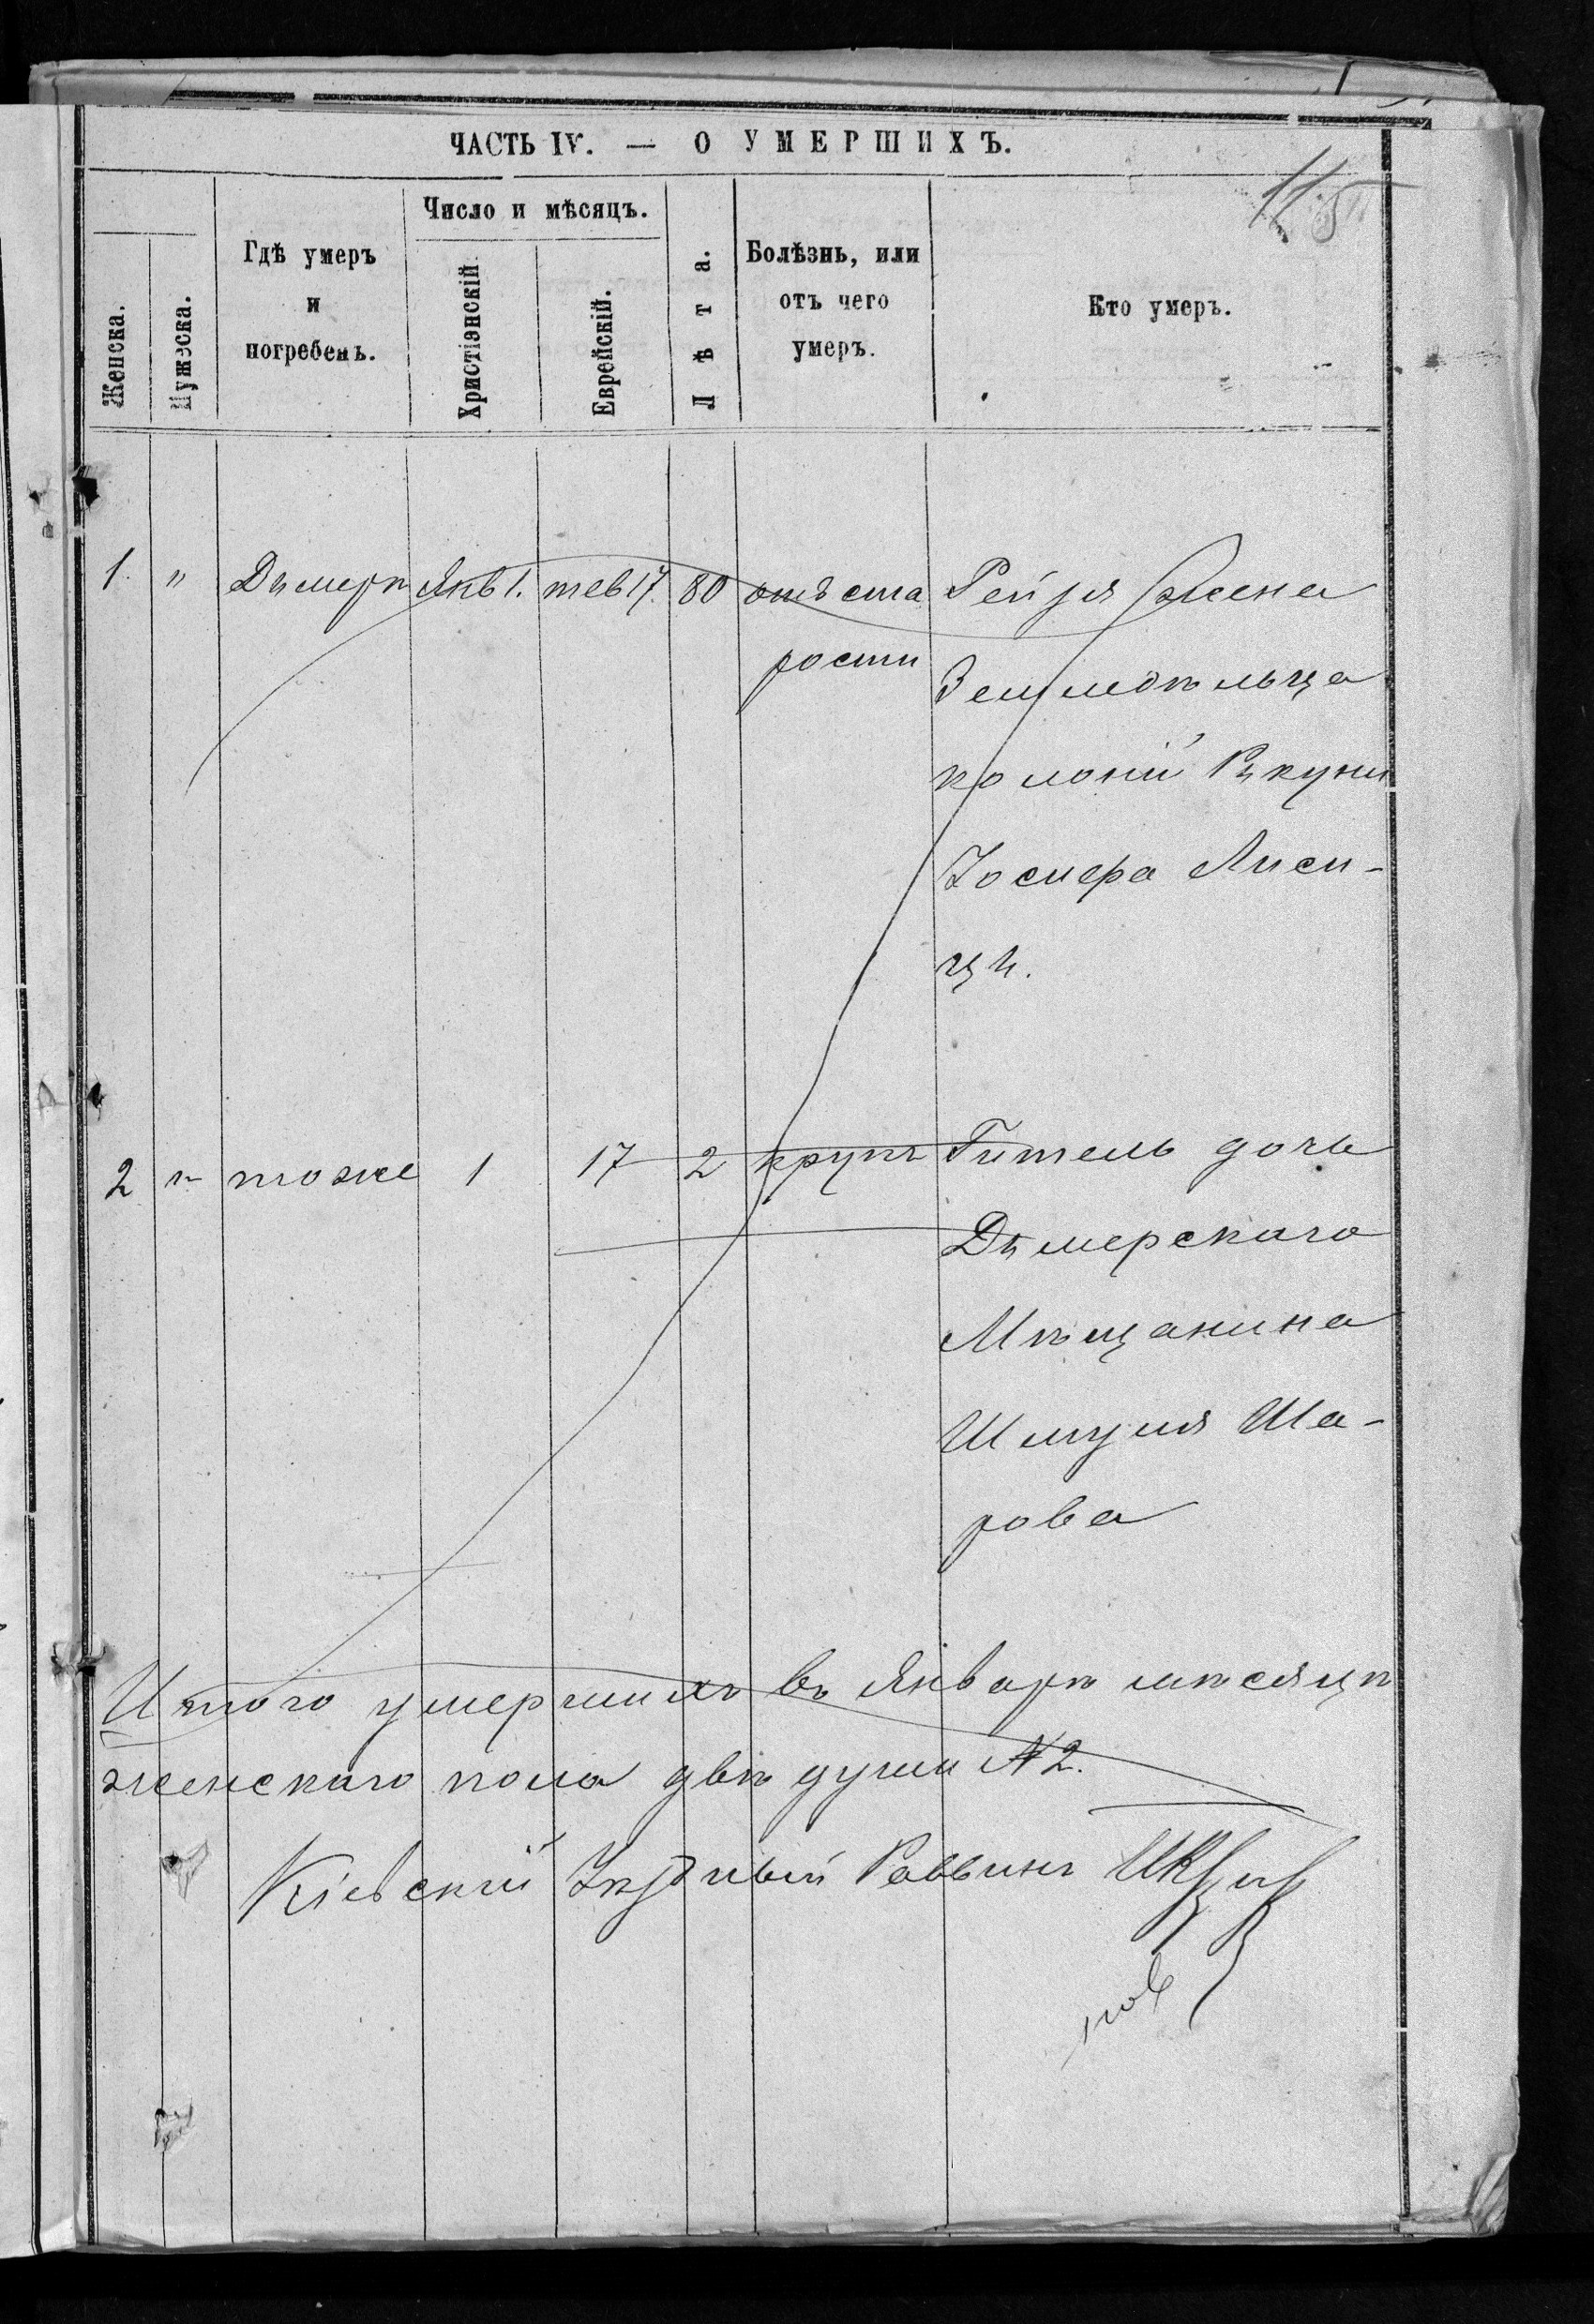 ЧАСТЬ IV. — О УМЕРШИХЪ.
Женска.
Мужеска.
Гдѣ умеръ
и
погребенъ.
Число и мѣсяцъ.
Христіэнскій.
Еврейскій.
Лѣта.
Болѣзнь, или
отъ чего
умеръ.
Кто умеръ.
1. " Дымерѣ Янв 1. тев 17. 80 отъ ста Рейзя жена
рости Земледѣльца
колоніи
Іосифа Лиси-
цы.
2 " тоже 1 17 2 крупъ Гитель дочь
Дымерскаго
Мѣщанина
Шмуля Ша-
рова
Итого умершихъ въ Январѣ мѣсяцѣ
женскаго пола двѣ души № 2.
Кіевскій Уѣздный Раввинъ